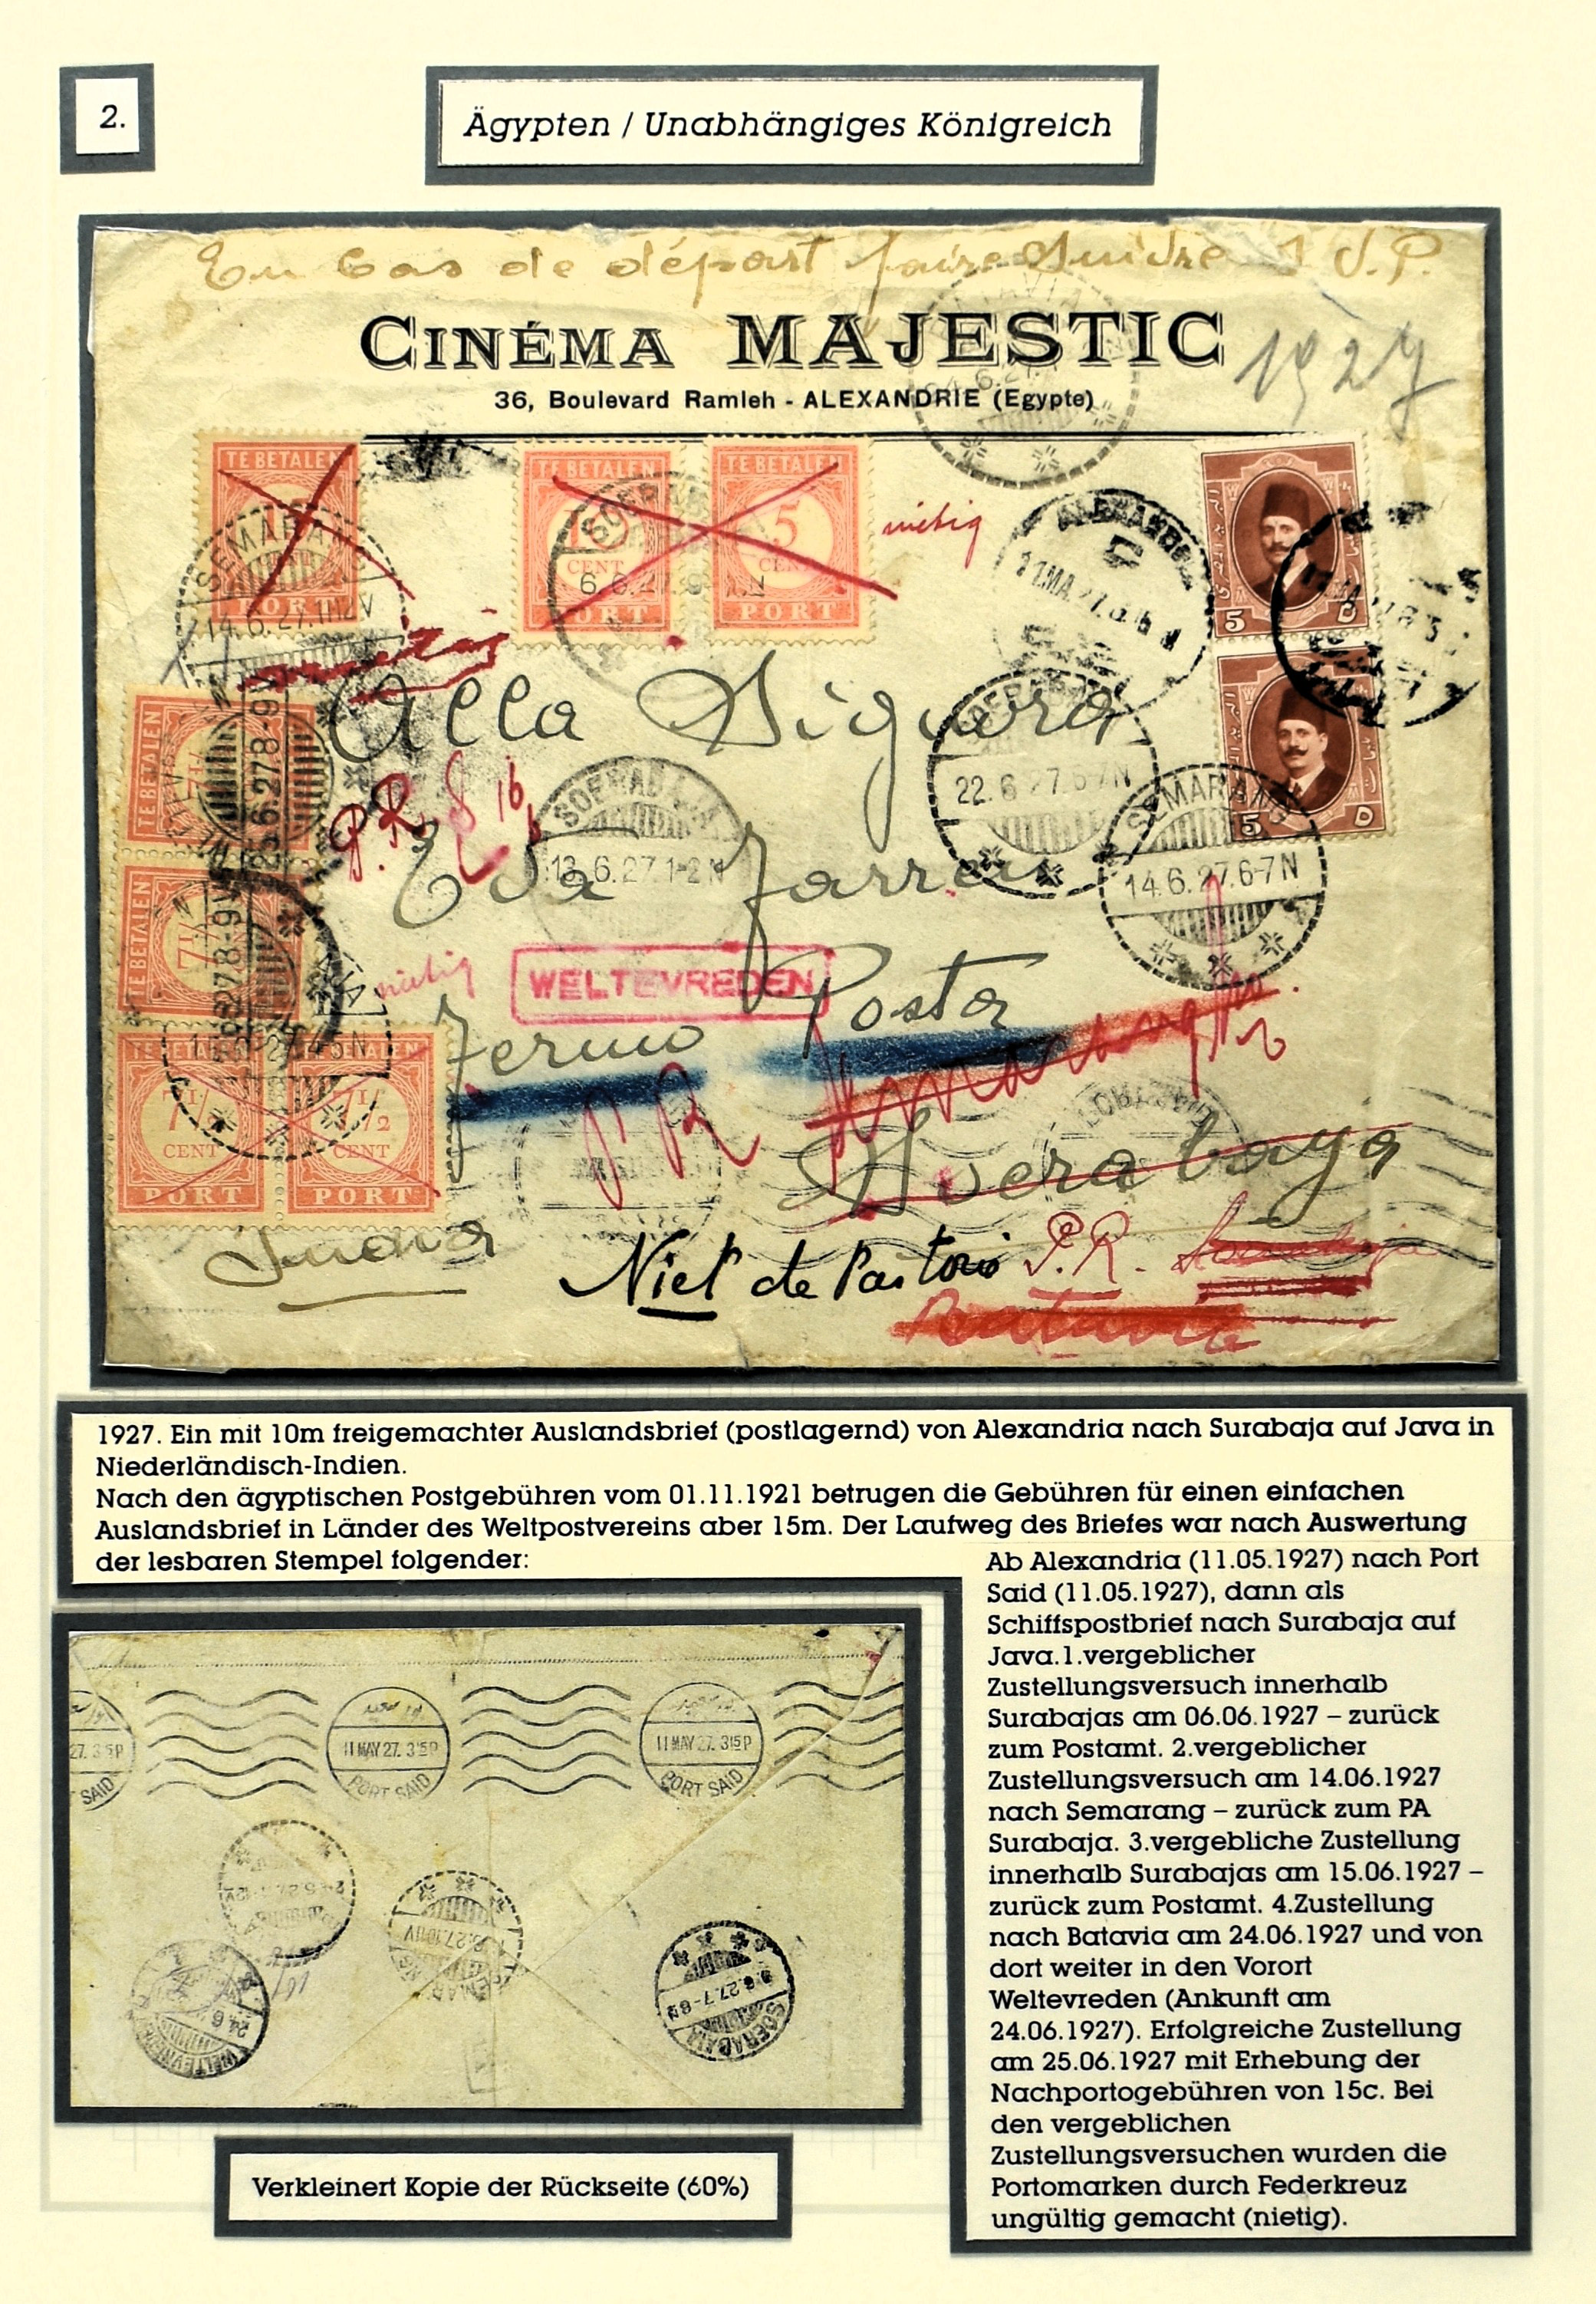 2.
Ägypten / Unabhängiges Königreich
En cas de départ faire suivre S.V.P.
CINÉMA MAJESTIC
1927
36, Boulevard Ramleh - ALEXANDRIE (Egypte)
TE BETALEN
PORT
TE BETALEN
CENT
PORT
TE BETALEN
5
CENT
PORT
nietig
SEMARANG
14.6.27.11-12V
SOERABAJA
6.6.27.
ALEXANDRIA
11.MA.27.
5
5
5
5
Alla Signora
22.6.27.6-7N
SEMARANG
14.6.27.6-7N
TE BETALEN
25.6.27.8-9V
P.R.
SOERABAJA
13.6.27.1-2N
TE BETALEN
7½
nietig
WELTEVREDEN
Fermo Posta
TE BETALEN
7½
CENT
PORT
TE BETALEN
7½
CENT
PORT
PR
Soerabaya
India
Niet de Pastorie P.R.
Batavia
1927. Ein mit 10m freigemachter Auslandsbrief (postlagernd) von Alexandria nach Surabaja auf Java in
Niederländisch-Indien.
Nach den ägyptischen Postgebühren vom 01.11.1921 betrugen die Gebühren für einen einfachen
Auslandsbrief in Länder des Weltpostvereins aber 15m. Der Laufweg des Briefes war nach Auswertung
der lesbaren Stempel folgender:
Ab Alexandria (11.05.1927) nach Port
Said (11.05.1927), dann als
Schiffspostbrief nach Surabaja auf
Java.1.vergeblicher
Zustellungsversuch innerhalb
Surabajas am 06.06.1927 – zurück
zum Postamt. 2.vergeblicher
Zustellungsversuch am 14.06.1927
nach Semarang – zurück zum PA
Surabaja. 3.vergebliche Zustellung
innerhalb Surabajas am 15.06.1927 –
zurück zum Postamt. 4.Zustellung
nach Batavia am 24.06.1927 und von
dort weiter in den Vorort
Weltevreden (Ankunft am
24.06.1927). Erfolgreiche Zustellung
am 25.06.1927 mit Erhebung der
Nachportogebühren von 15c. Bei
den vergeblichen
Zustellungsversuchen wurden die
Portomarken durch Federkreuz
ungültig gemacht (nietig).
27. 3 15P
SAID
11 MAY 27. 3 15P
PORT SAID
11 MAY 27. 3 15P
PORT SAID
24.6
WELTEVREDEN
6.27.7-8N
SOERABAJA
Verkleinert Kopie der Rückseite (60%)